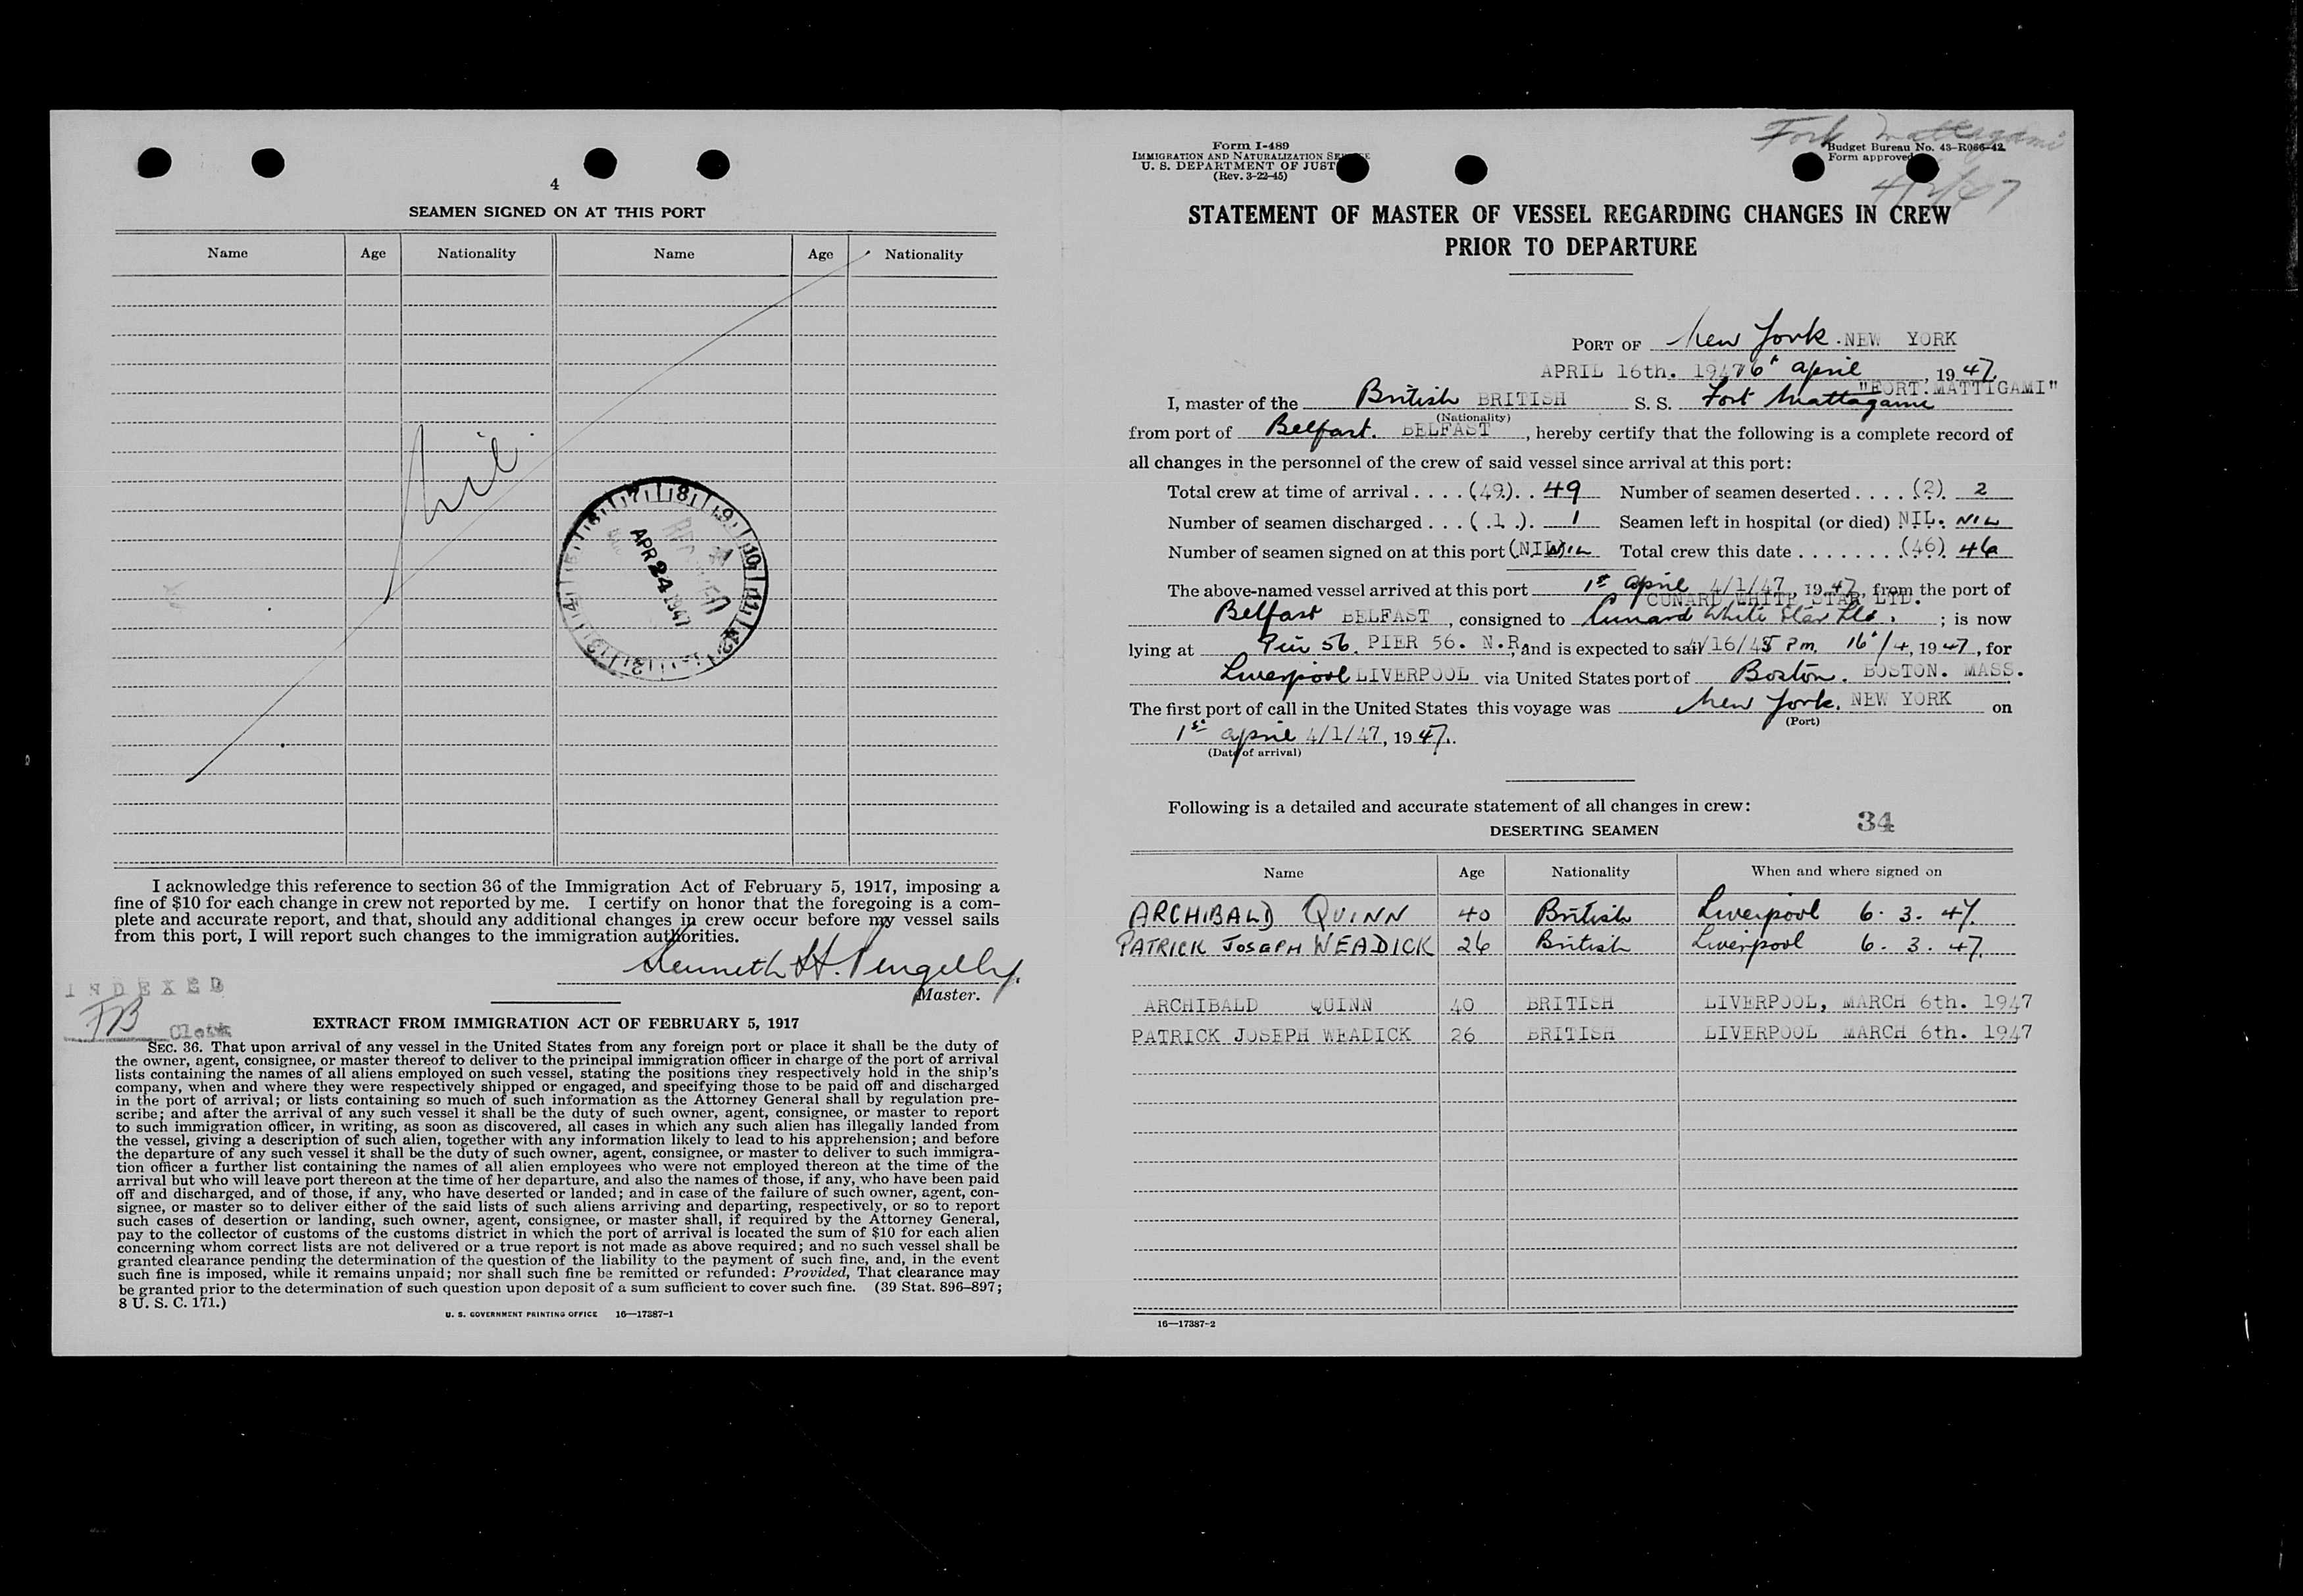 4
SEAMEN SIGNED ON AT THIS PORT
Name Age Nationality Name Age Nationality
Nil.
7 8 9 10 11 12
APR 24 1947
I acknowledge this reference to section 36 of the Immigration Act of February 5, 1917, imposing a
fine of $10 for each change in crew not reported by me. I certify on honor that the foregoing is a com-
plete and accurate report, and that, should any additional changes in crew occur before my vessel sails
from this port, I will report such changes to the immigration authorities.
Kenneth H. Pengelly.
Master.
INDEXED
FB Clerk
EXTRACT FROM IMMIGRATION ACT OF FEBRUARY 5, 1917
SEC. 36. That upon arrival of any vessel in the United States from any foreign port or place it shall be the duty of
the owner, agent, consignee, or master thereof to deliver to the principal immigration officer in charge of the port of arrival
lists containing the names of all aliens employed on such vessel, stating the positions they respectively hold in the ship's
company, when and where they were respectively shipped or engaged, and specifying those to be paid off and discharged
in the port of arrival; or lists containing so much of such information as the Attorney General shall by regulation pre-
scribe; and after the arrival of any such vessel it shall be the duty of such owner, agent, consignee, or master to report
to such immigration officer, in writing, as soon as discovered, all cases in which any such alien has illegally landed from
the vessel, giving a description of such alien, together with any information likely to lead to his apprehension; and before
the departure of any such vessel it shall be the duty of such owner, agent, consignee, or master to deliver to such immigra-
tion officer a further list containing the names of all alien employees who were not employed thereon at the time of the
arrival but who will leave port thereon at the time of her departure, and also the names of those, if any, who have been paid
off and discharged, and of those, if any, who have deserted or landed; and in case of the failure of such owner, agent, con-
signee, or master so to deliver either of the said lists of such aliens arriving and departing, respectively, or so to report
such cases of desertion or landing, such owner, agent, consignee, or master shall, if required by the Attorney General,
pay to the collector of customs of the customs district in which the port of arrival is located the sum of $10 for each alien
concerning whom correct lists are not delivered or a true report is not made as above required; and no such vessel shall be
granted clearance pending the determination of the question of the liability to the payment of such fine, and, in the event
such fine is imposed, while it remains unpaid; nor shall such fine be remitted or refunded: Provided, That clearance may
be granted prior to the determination of such question upon deposit of a sum sufficient to cover such fine. (39 Stat. 896–897;
8 U. S. C. 171.)
U. S. GOVERNMENT PRINTING OFFICE 16—17387-1
Form I-489
IMMIGRATION AND NATURALIZATION
U. S. DEPARTMENT OF JUST
(Rev. 3-22-45)
Fort Mattagami
Budget Bureau No. 43-R066-42.
Form approved
STATEMENT OF MASTER OF VESSEL REGARDING CHANGES IN CREW
PRIOR TO DEPARTURE
PORT OF New York. NEW YORK
APRIL 16th. 1947 16" April, 1947.
"FORT MATTIGAMI"
I, master of the British BRITISH S. S. Fort Mattagami
(Nationality)
from port of Belfast. BELFAST, hereby certify that the following is a complete record of
all changes in the personnel of the crew of said vessel since arrival at this port:
Total crew at time of arrival . . . . (49). . 49 Number of seamen deserted . . . . (2). 2
Number of seamen discharged . . . ( .1 .). 1 Seamen left in hospital (or died) NIL. NIL
Number of seamen signed on at this port (NIL) NIL Total crew this date . . . . . . . (46) 46
The above-named vessel arrived at this port 1st April 4/1/47, 1947, from the port of
CUNARD WHITE STAR LTD.
Belfast BELFAST, consigned to Cunard White Star Ltd.; is now
lying at Pier 56. PIER 56. N.R. and is expected to sail 4/16/4 5 Pm. 16"/4, 1947, for
Liverpool LIVERPOOL via United States port of Boston. BOSTON. MASS.
The first port of call in the United States this voyage was New York. NEW YORK on
(Port)
1st April 4/1/47, 1947.
(Date of arrival)
Following is a detailed and accurate statement of all changes in crew:
34
DESERTING SEAMEN
Name Age Nationality When and where signed on
ARCHIBALD QUINN 40 British Liverpool 6. 3. 47.
PATRICK JOSEPH WEADICK 26 British Liverpool 6. 3. 47.
ARCHIBALD QUINN 40 BRITISH LIVERPOOL, MARCH 6th. 1947
PATRICK JOSEPH WEADICK 26 BRITISH LIVERPOOL MARCH 6th. 1947
16—17387-2